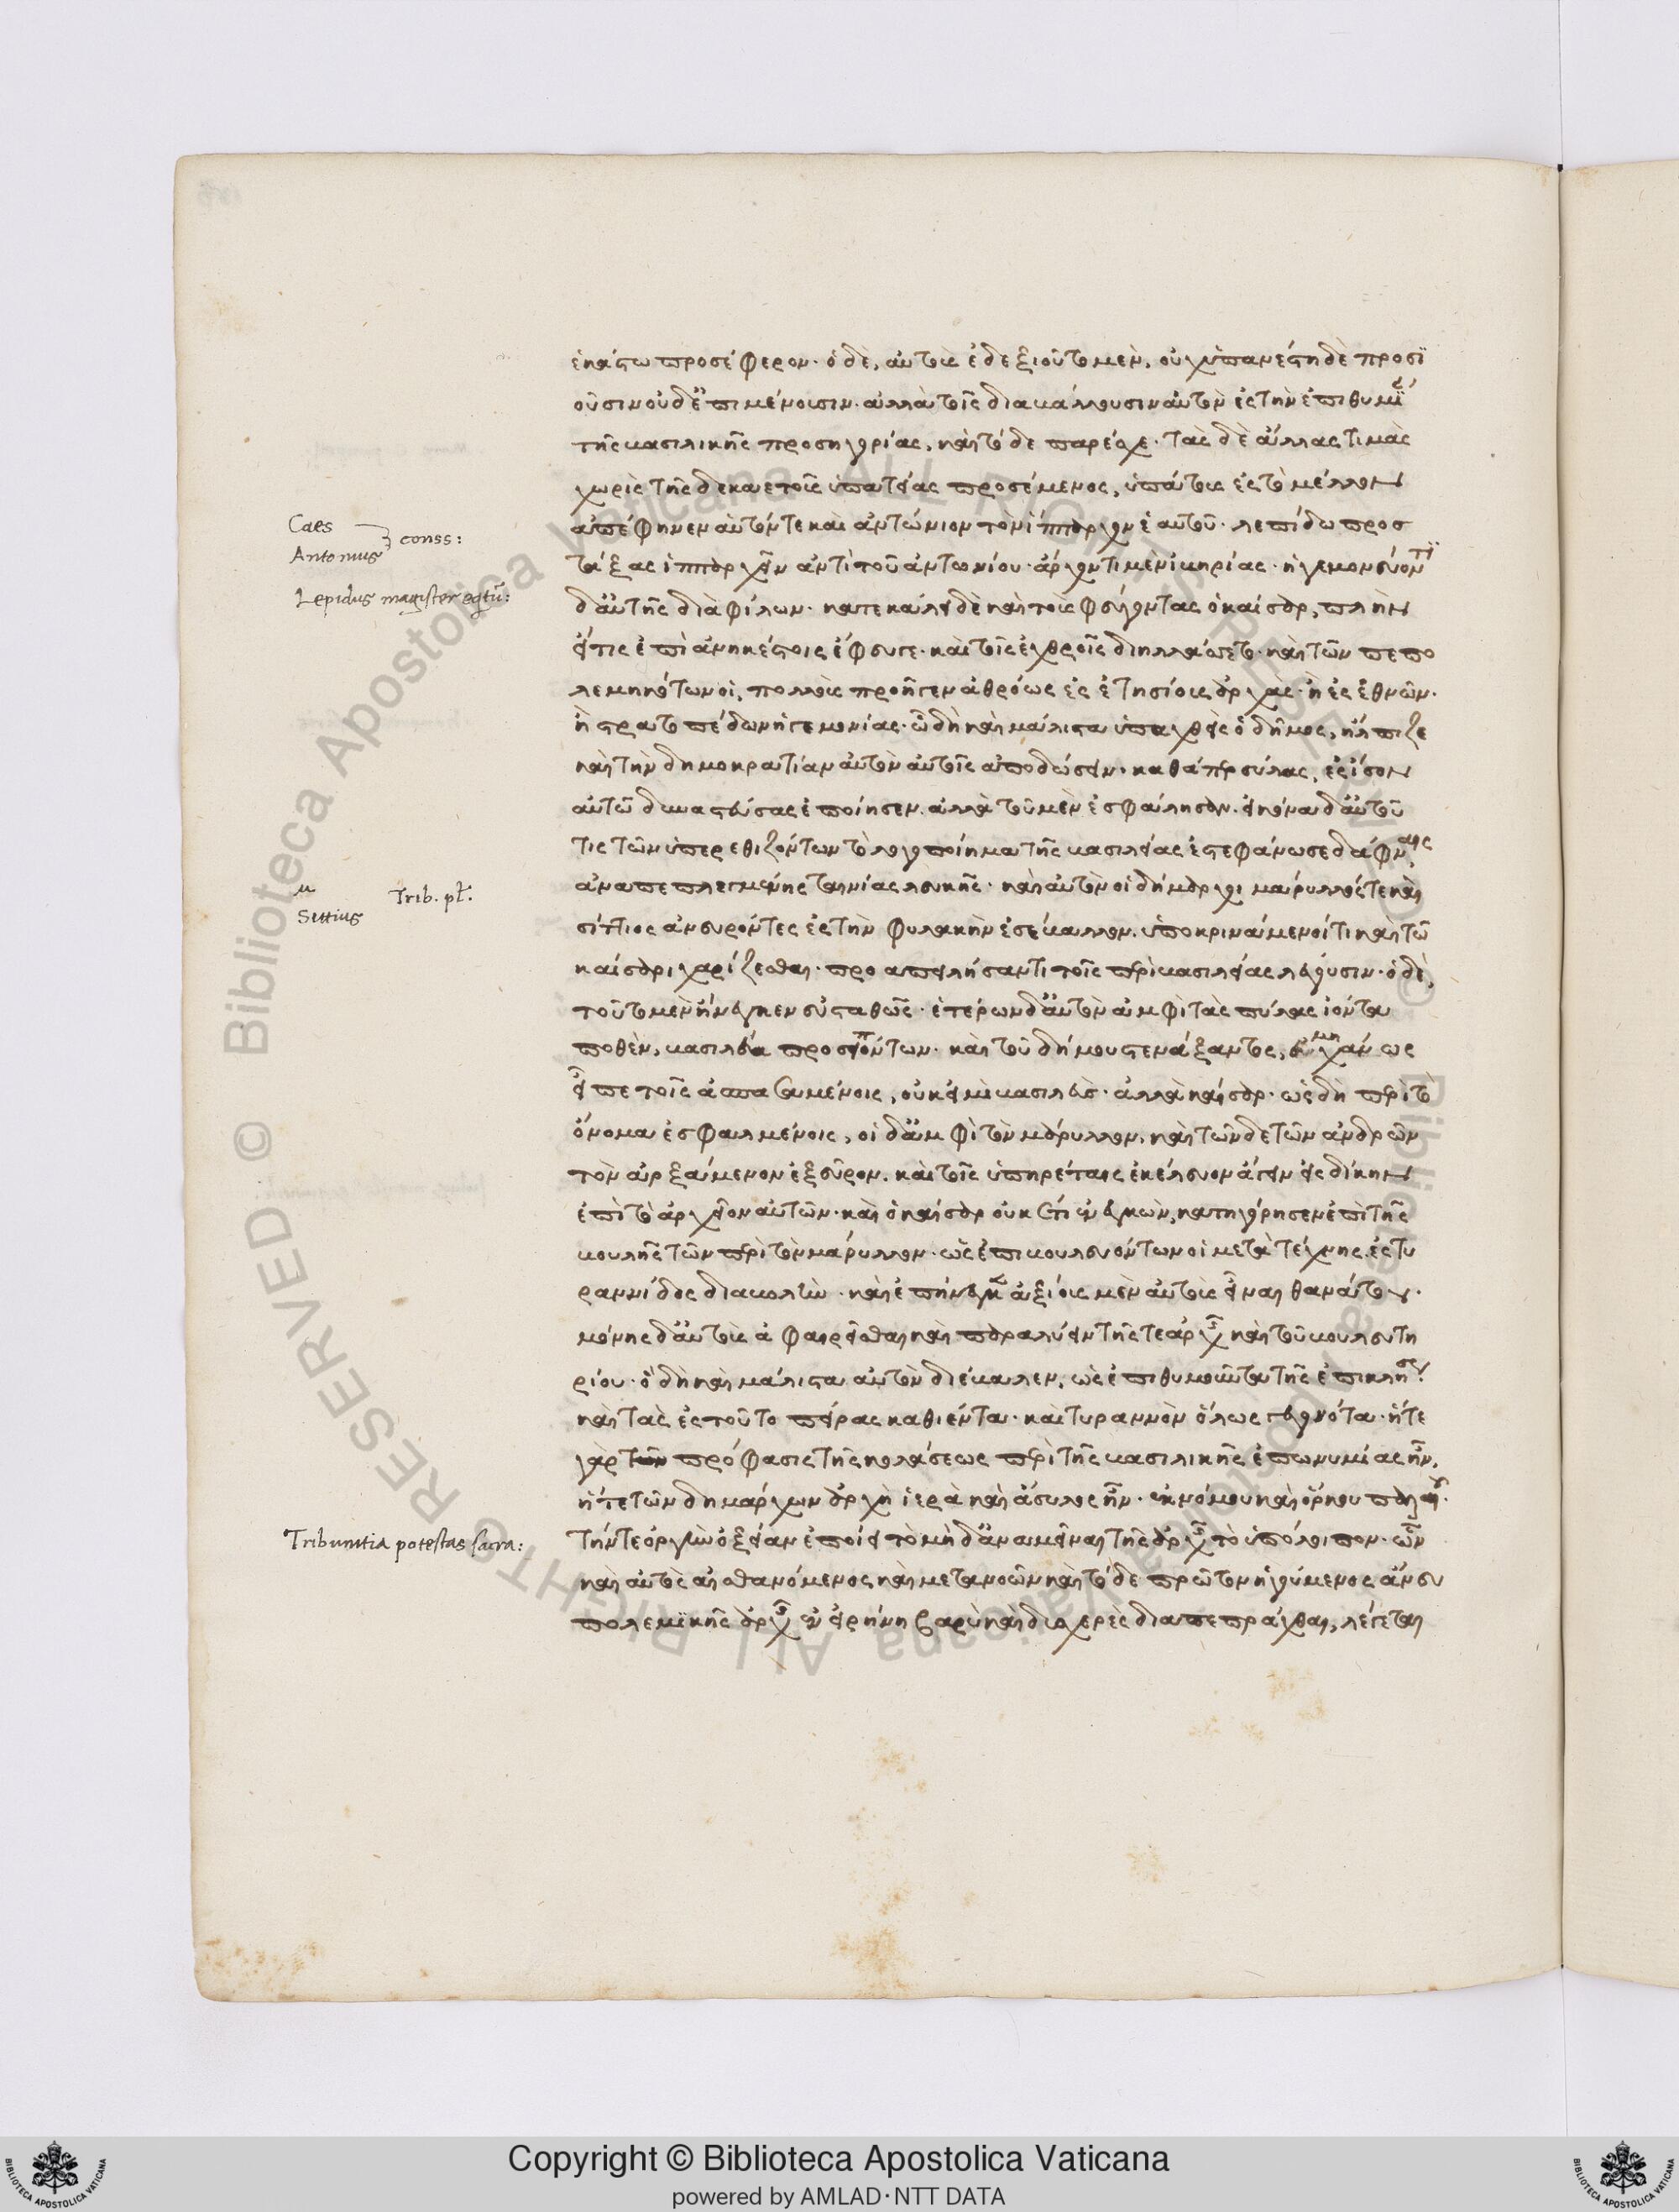 ἑκάστω προσέφερον. ὁ δὲ, αὐτοὺς ἐδεξιοῦτο μὲν, οὐχ ὑπανέστη δὲ προσϊ
οῦσιν οὐδ' ἐπιμένουσιν. ἀλλὰ τοῖς διαβάλλουσιν αὐτὸν ἐς τὴν ἐπιθυμίαν
τῆς βασιλικῆς προσηγορίας, καὶ τόδε παρέσχε. τὰς δὲ ἄλλας τιμὰς
χωρὶς τῆς δεκαετοῦς ὑπατείας προσέμενος, ὑπάτους ἐς τὸ μέλλον
Caes
Antonius } conss:
ἀπέφηνεν αὐτόν τε καὶ ἀντώνιον τὸν ἵππαρχον ἑαυτοῦ. λεπίδω προσ
τάξας ἱππαρχεῖν ἀντὶ τοῦ ἀντωνίου. ἄρχοντι μὲν ἰβηρίας. ἡγεμονεύοντϊ
Lepidus magister eqtũ:
δ' αὐτῆς διὰ φίλων. κατεκάλει δὲ καὶ τοὺς φεύγοντας ὁ καίσαρ, πλὴν
εἴ τις ἐπὶ ἀνηκέστοις ἔφευγε. καὶ τοῖς ἐχθροῖς διηλλάσσετο. καὶ τῶν πεπο
λεμηκότων οἱ, πολλοὺς προῆγεν ἀθρόως ἐς ἐτησίους ἀρχὰς. ἢ ἐς ἐθνῶν.
ἢ στρατοπέδων ἡγεμονίας. ὧ δὴ καὶ μάλιστα ὑπαχθεὶς ὁ δῆμος, ἤλπιζε
καὶ τὴν δημοκρατίαν αὐτὸν αὐτοῖς ἀποδώσειν. καθάπερ σύλας, ἐς ἴσον
αὐτῶ δυναστεύσας ἐποίησεν. ἀλλὰ τοῦ μὲν ἐσφάλησαν. εἰκόνα δ' αὐτοῦ
τις τῶν ὑπερεθιζόντων τὸ λογοποίημα τῆς βασιλείας ἐστεφάνωσε δάφναις
ἀναπεπλεγμένης ταινίας λευκῆς. καὶ αὐτὸν οἱ δήμαρχοι μάρυλλός τε καὶ
M
Settius Trib. pl.
σίτιος ἀνευρόντες ἐς τὴν φυλακὴν ἐσέβαλλον. ὑποκρινάμενοί τι καὶ τῶ
καίσαρι χαρίζεσθαι. προαπειλήσαντι τοῖς περὶ βασιλείας λέγουσιν. ὁ δὲ,
τοῦτο μὲν ἤνεγκεν εὐσταθῶς. ἑτέρων δ' αὐτὸν ἀμφὶ τὰς πύλας ἰόντα
ποθὲν, βασιλέα προσειπόντων. καὶ τοῦ δήμου στενάξαντος, εὐμηχάνως
εἶπε τοῖς ἀσπασαμένοις, οὐκ εἰμὶ βασιλεὺς. ἀλλὰ καίσαρ. ὡς δὴ περὶ τὸ
ὄνομα ἐσφαλμένοις, οἱ δ' ἀμφὶ τὸν μάρυλλον, καὶ τῶνδε τῶν ἀνδρῶν
τὸν ἀρξάμενον ἐξεῦρον. καὶ τοῖς ὑπηρέταις ἐκέλευον ἄγειν ἐς δίκην
ἐπὶ τὸ ἀρχεῖον αὐτῶν. καὶ ὁ καίσαρ οὐκ ἔτι ἐνεγκὼν, κατηγόρησεν ἐπὶ τῆς
βουλῆς τῶν περὶ τὸν μάρυλλον. ὡς ἐπιβουλευόντων οἱ μετὰ τέχνης. ἐς τυ
ραννίδος διαβολὴν. καὶ ἐπήνεγκεν ἀξίους μὲν αὐτοὺς εἶναι θανάτου.
μόνης δ' αὐτοὺς ἀφαιρεῖσθαι καὶ παραλύειν τῆς τε ἀρχῆς καὶ τοῦ βουλευτη
ρίου. ὃ δὴ καὶ μάλιστα αὐτὸν διέβαλεν, ὡς ἐπιθυμοῦντα τῆς ἐπικλήσεως
καὶ τὰς ἐς τοῦτο πείρας καθιέντα. καὶ τυραννὸν ὅλως γεγονότα. ἥ τε
γὰρ πρόφασις τῆς κολάσεως περὶ τῆς βασιλικῆς ἐπωνυμίας ἦν,
ἥ τε τῶν δημάρχων ἀρχὴ ἱερὰ καὶ ἄσυλος ἦν. ἐκ νόμου καὶ ὅρκου παλαιοῦ.
Tribunitia potestas sacra:
τήν τε ὀργὴν ὀξεῖαν ἐποίει τὸ μὴ δ' ἀναμεῖναι τῆς ἀρχῆς τὸ ὑπόλοιπον. ὧν
καὶ αὐτὸς αἰσθανόμενος καὶ μετανοῶν καὶ τόδε πρῶτον ἡγούμενος ἄνευ
πολεμϊκῆς ἀρχῆς ἐν εἰρήνη βαρὺ καὶ δυσχερὲς διαπεπράχθαι, λέγεται